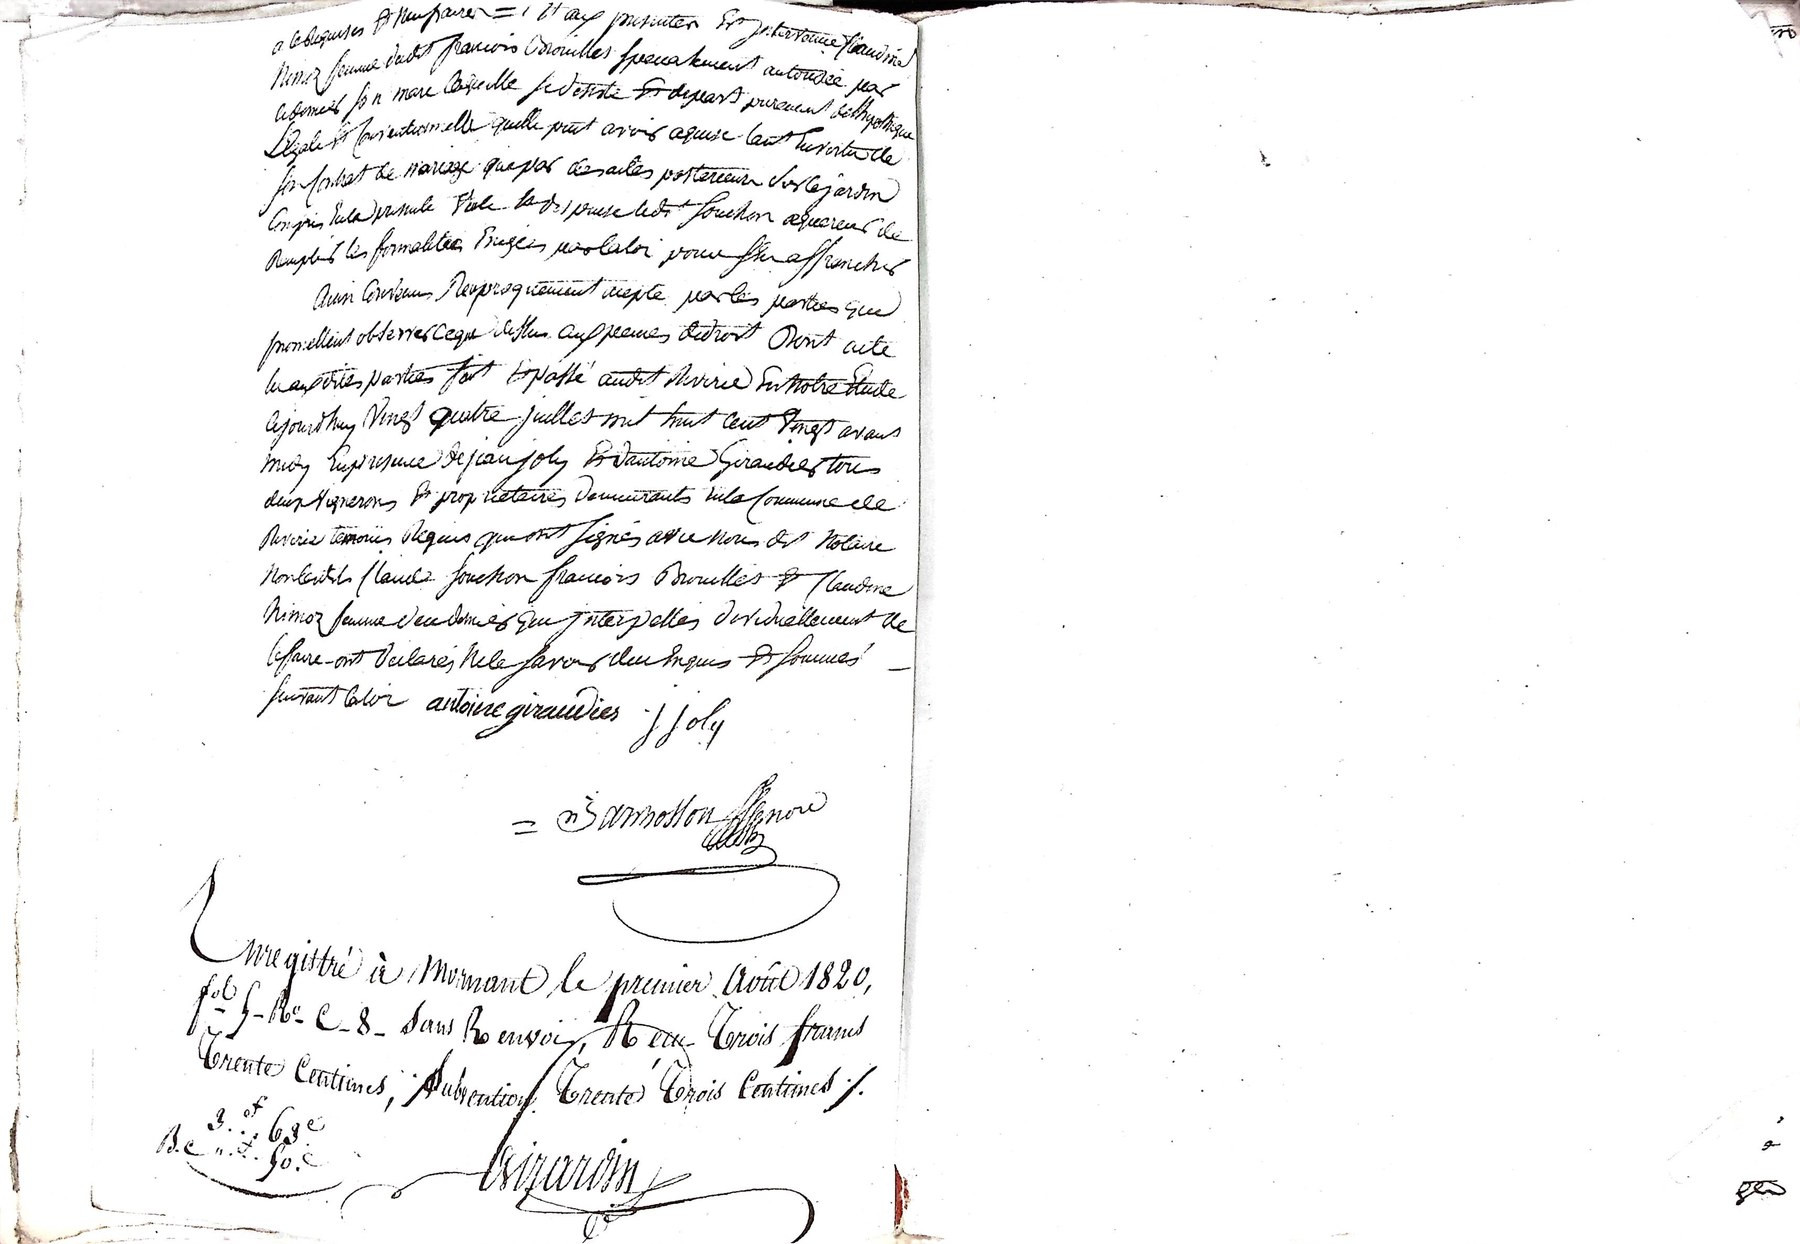 aux presentes Est Intervenue Claudine
Nimoz femme dudit francois Brouilles specialement autorisée par
ce dernier son mare laquelle se desiste Et depart purement de lhypotheque
Légale Et Conventionnelle quelle peut avoir aquise tant En vertu de
son Contrat de mariage que par des actes posterieurs sur le jardin
Compris En la presente Vente Et dispense ledit Souchon aquereur de
Remplir les formalites Exigées par la loi pour sen affranchir
Ainsi Convenus Reciproquement accepte par les parties que
promettent observer ce que dessus aux peines de droit Dont acte
lu auxdites parties fait Et passé audit Riverie En notre Etude
cejourdhuy Vingt quatre juillet mil huit Cent Vingt avant
midy En presence de jean joly Et dantoine Giraudier tous
deux Vignerons Et proprietaires demeurants En la Commune de
Riverie temoins Requis qui ont signés avec nous dit Notaire
Non lesdits Claude Souchon francois Brouilles Et Claudine
Nimoz femme de ce dernier que Interpellés individuellement de
le faire ont Declarés Ne le savoir de ce Enquis Et Sommés
suivant la loi antoine giraudier j joly
Enregistré à Mornant le premier Août 1820,
fol 5 Ro C 8 Sans Renvoi, Reçu Trois francs
Trente Centimes, Subvention Trente Trois Centimes ./.
3f.. 63c
Girardin